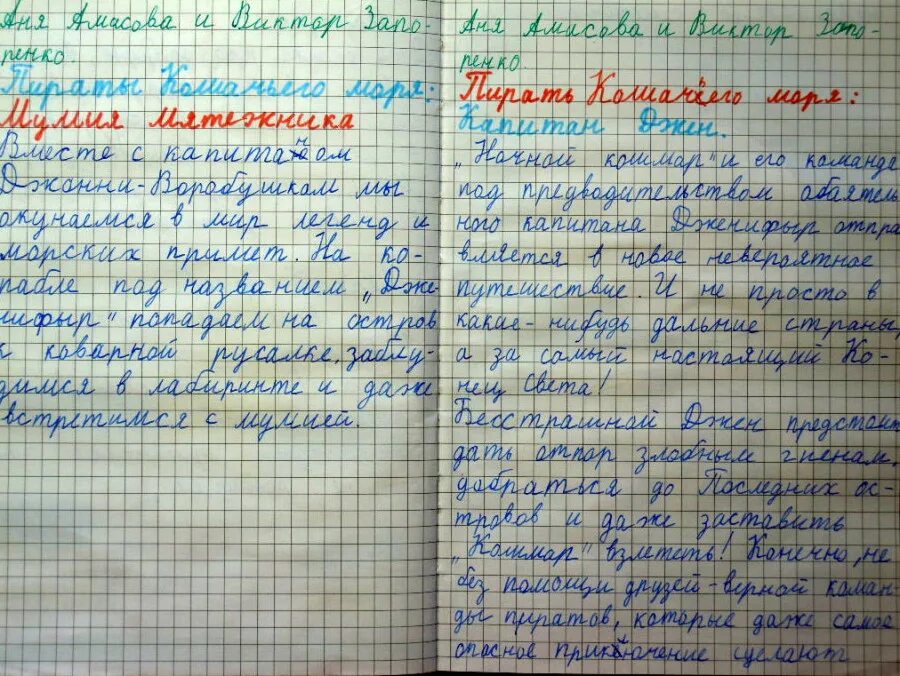 Аня Амасова и Виктор Запо-
ренко.
Пираты Кошачьего моря:
Мумия мятежника
Вместе с капитаном
Джонни-Воробушком мы
окунаемся в мир легенд и
морских примет. На ко-
рабле под названием „Дже-
нифыр" попадаем на остров
к коварной русалке, заблу-
димся в лабиринте и даже
встретимся с мумией.
Аня Амасова и Виктор Запо-
ренко.
Пираты Кошачьего моря:
Капитан Джен.
„Ночной кошмар" и его команда
под предводительством обаятель
ного капитана Дженифыр отпра
вляется в новое невероятное
путешествие. И не просто в
какие-нибудь дальние страны,
а за самый настоящий Ко-
нец Света!
Бесстрашной Джен предстоит
дать отпор злобным гиенам,
добраться до Последних ос-
тровов и даже заставить
„Кошмар" взлететь! Конечно, не
без помощи друзей-верной коман-
ды пиратов, которые даже самое
опасное приключение сделают